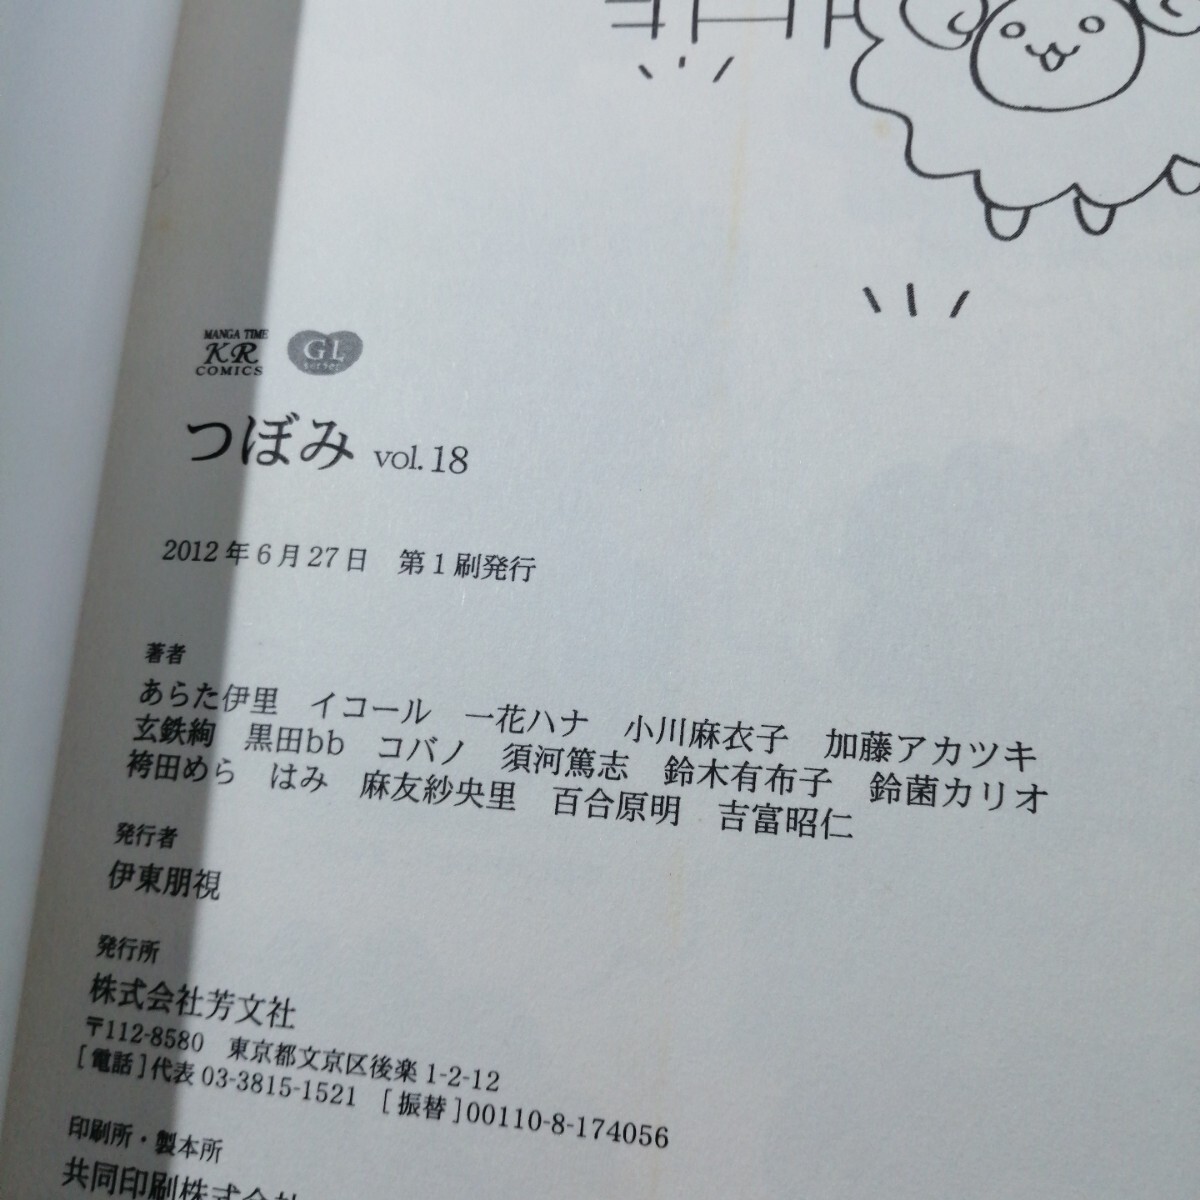 MANGA TIME
KR
COMICS
GL
series
つぼみ vol.18
2012年6月27日　第1刷発行
著者
あらた伊里　イコール　一花ハナ　小川麻衣子　加藤アカツキ
玄鉄絢　黒田bb　コバノ　須河篤志　鈴木有布子　鈴菌カリオ
袴田めら　はみ　麻友紗央里　百合原明　吉富昭仁
発行者
伊東朋視
発行所
株式会社芳文社
〒112-8580　東京都文京区後楽1-2-12
[電話]代表03-3815-1521　[振替]00110-8-174056
印刷所・製本所
共同印刷株式会社